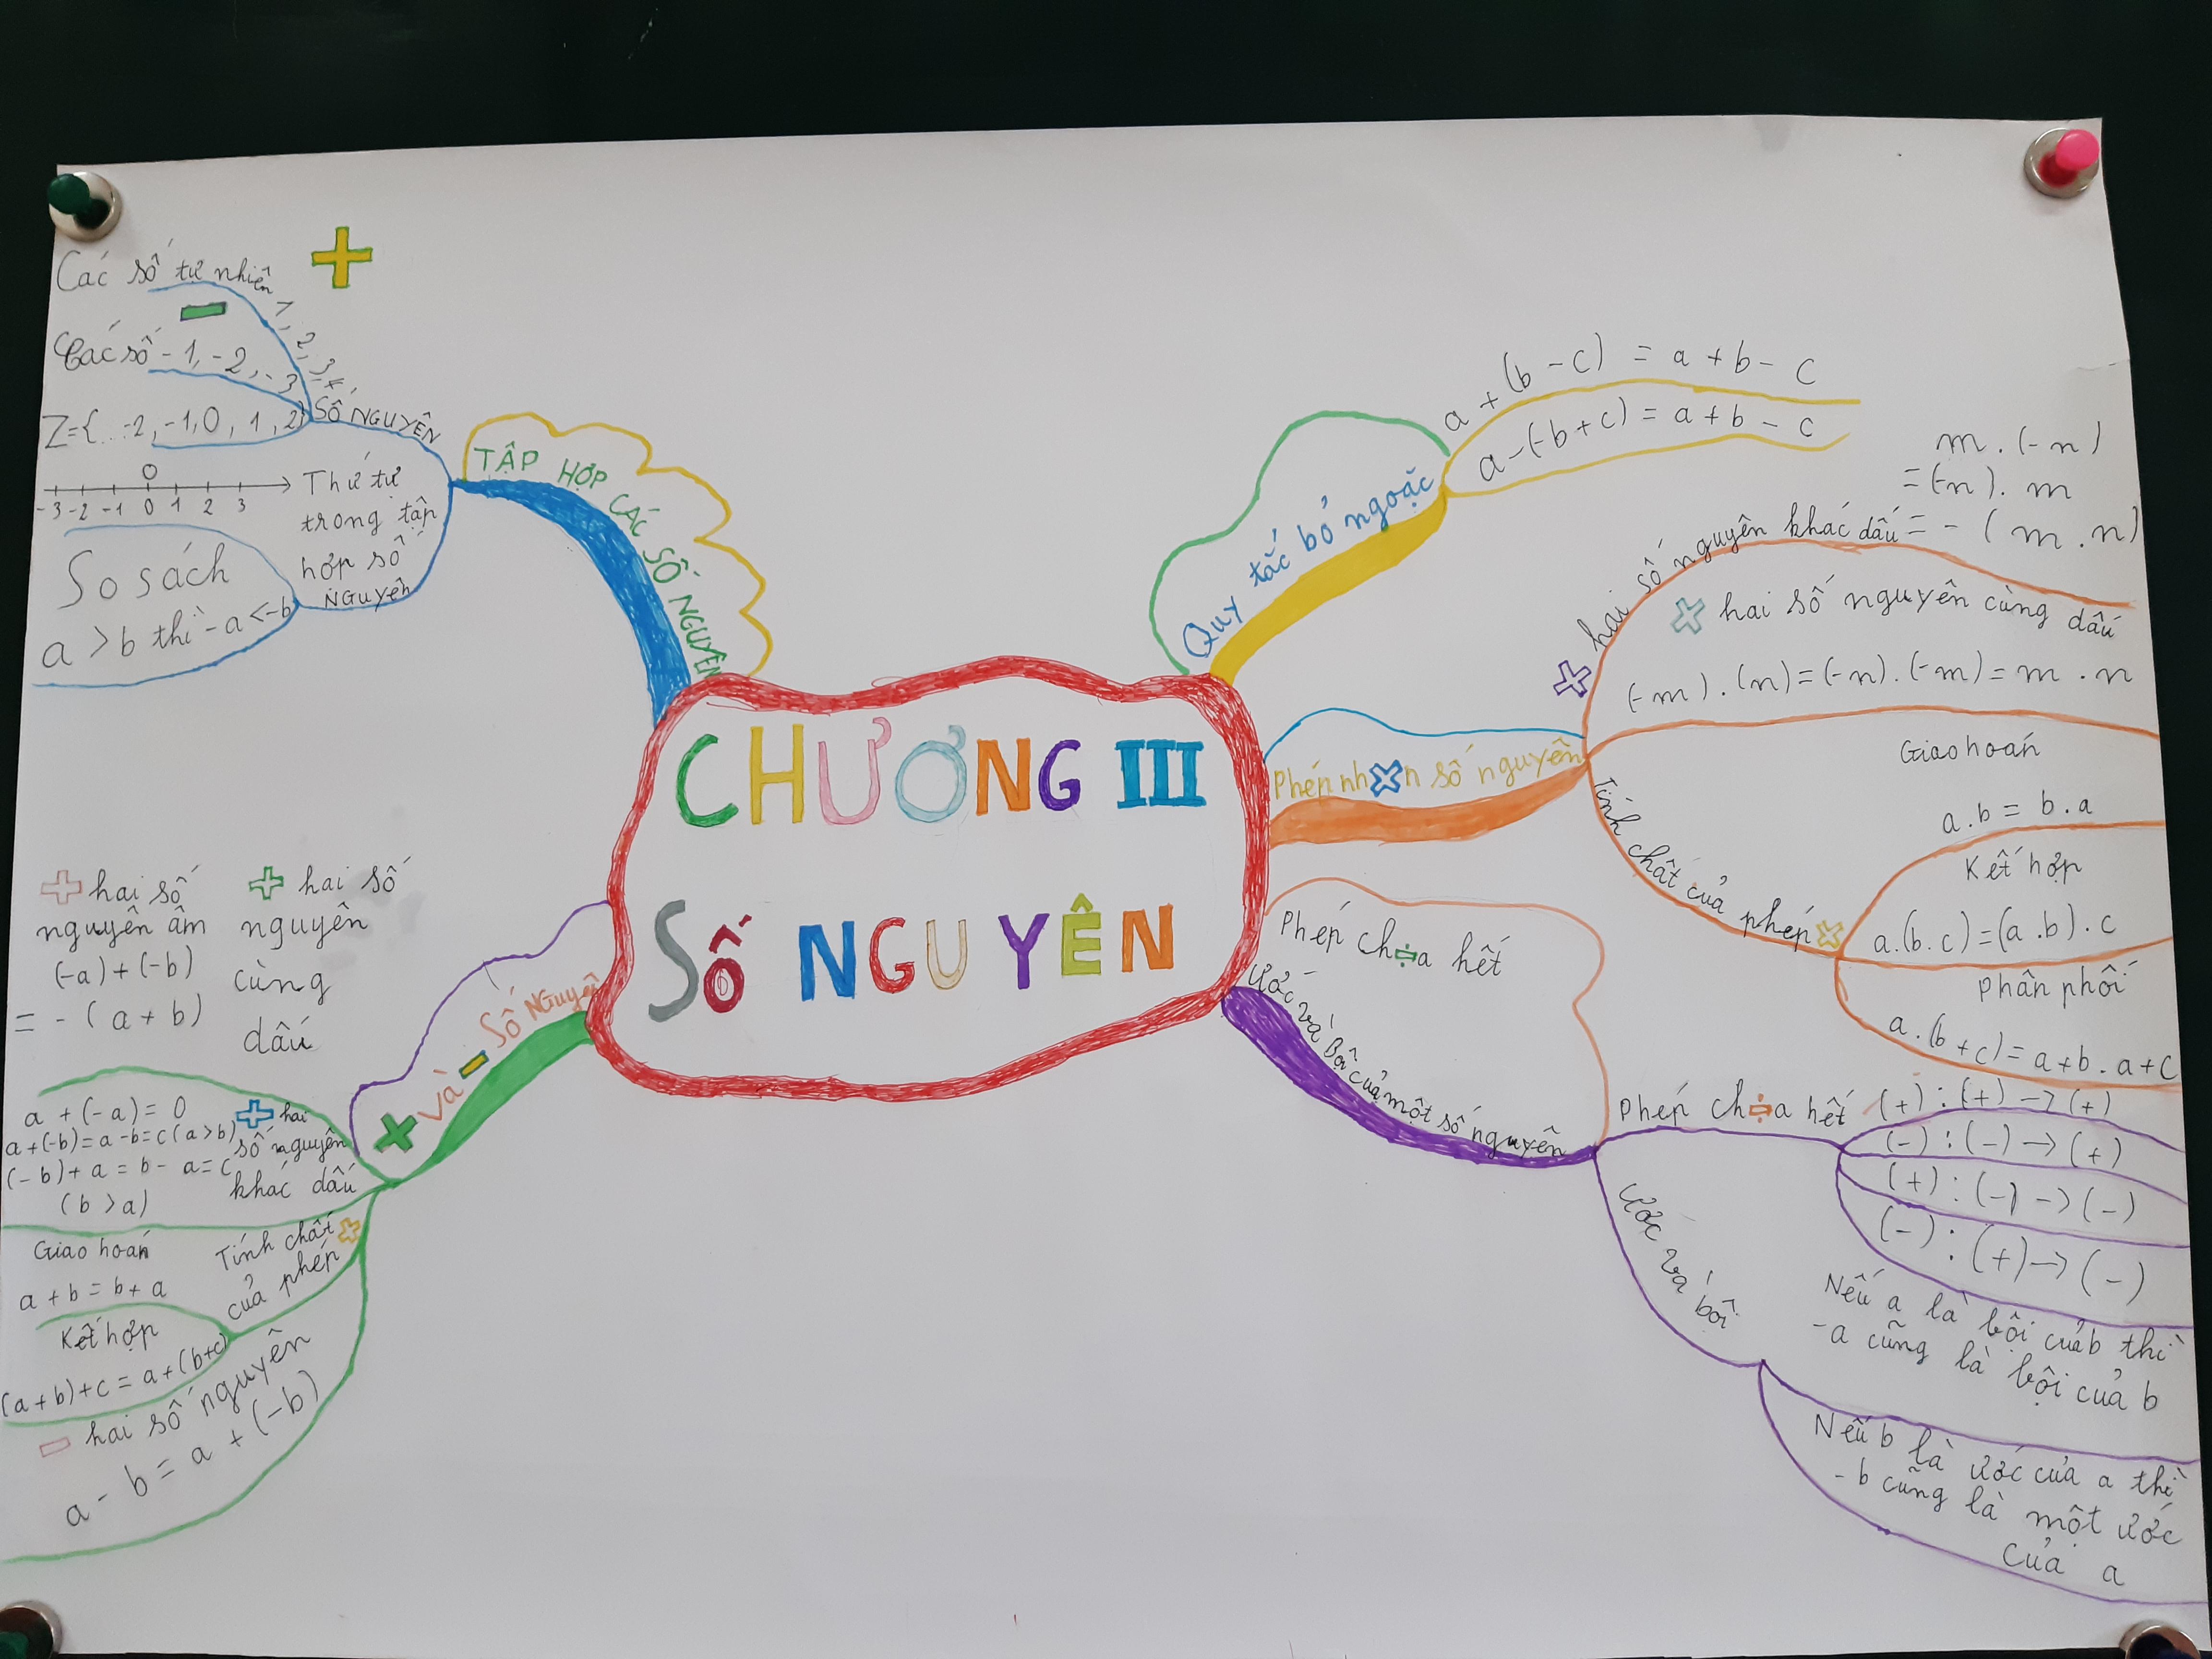 CHƯƠNG III
SỐ NGUYÊN
TẬP HỢP CÁC SỐ NGUYÊN
SỐ NGUYÊN
Các số tự nhiên 1, 2, 3, 4,
Các số -1, -2, -3
Z={...-2,-1,0, 1, 2}
Thứ tự
trong tập
hợp số
NGUYÊN
0
-3 -2 -1 0 1 2 3
So sách
a > b thì -a < -b
+ và - Số NGuyên
+ hai số
nguyên âm
(-a) + (-b)
= - ( a + b )
+ hai số
nguyên
cùng
dấu
+ hai
số nguyên
khác dấu
a + (-a) = 0
a + (-b) = a - b = c (a > b)
(-b) + a = b - a = c
( b > a )
Tính chất
của phép +
Giao hoán
a + b = b + a
Kết hợp
(a + b) + c = a + (b+c)
- hai số nguyên
a - b = a + (-b)
Quy tắc bỏ ngoặc
a + (b - c) = a + b - c
a - (-b + c) = a + b - c
Phép nhxn số nguyên
x hai số nguyên khác dấu
m . (-n)
= (-n) . m
= - ( m . n )
x hai số nguyên cùng dấu
(-m) . (n) = (-n) . (-m) = m . n
Tính chất của phép x
Giao hoán
a . b = b . a
Kết hợp
a . (b . c) = (a . b) . c
Phân phối
a . (b + c) = a + b . a + c
Ước và Bội của một số nguyên
Phép ch÷a hết
Phép ch÷a hết
(+) : (+) → (+)
(-) : (-) → (+)
(+) : (-) → (-)
(-) : (+) → (-)
Ước và bội
Nếu a là bội của b thì
-a cũng là bội của b
Nếu b là ước của a thì
-b cũng là một ước
của a